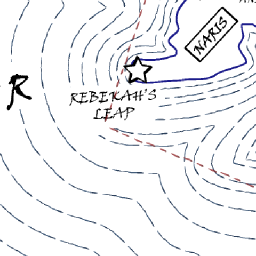 NARIS
R
REBEKAH'S
LEAP